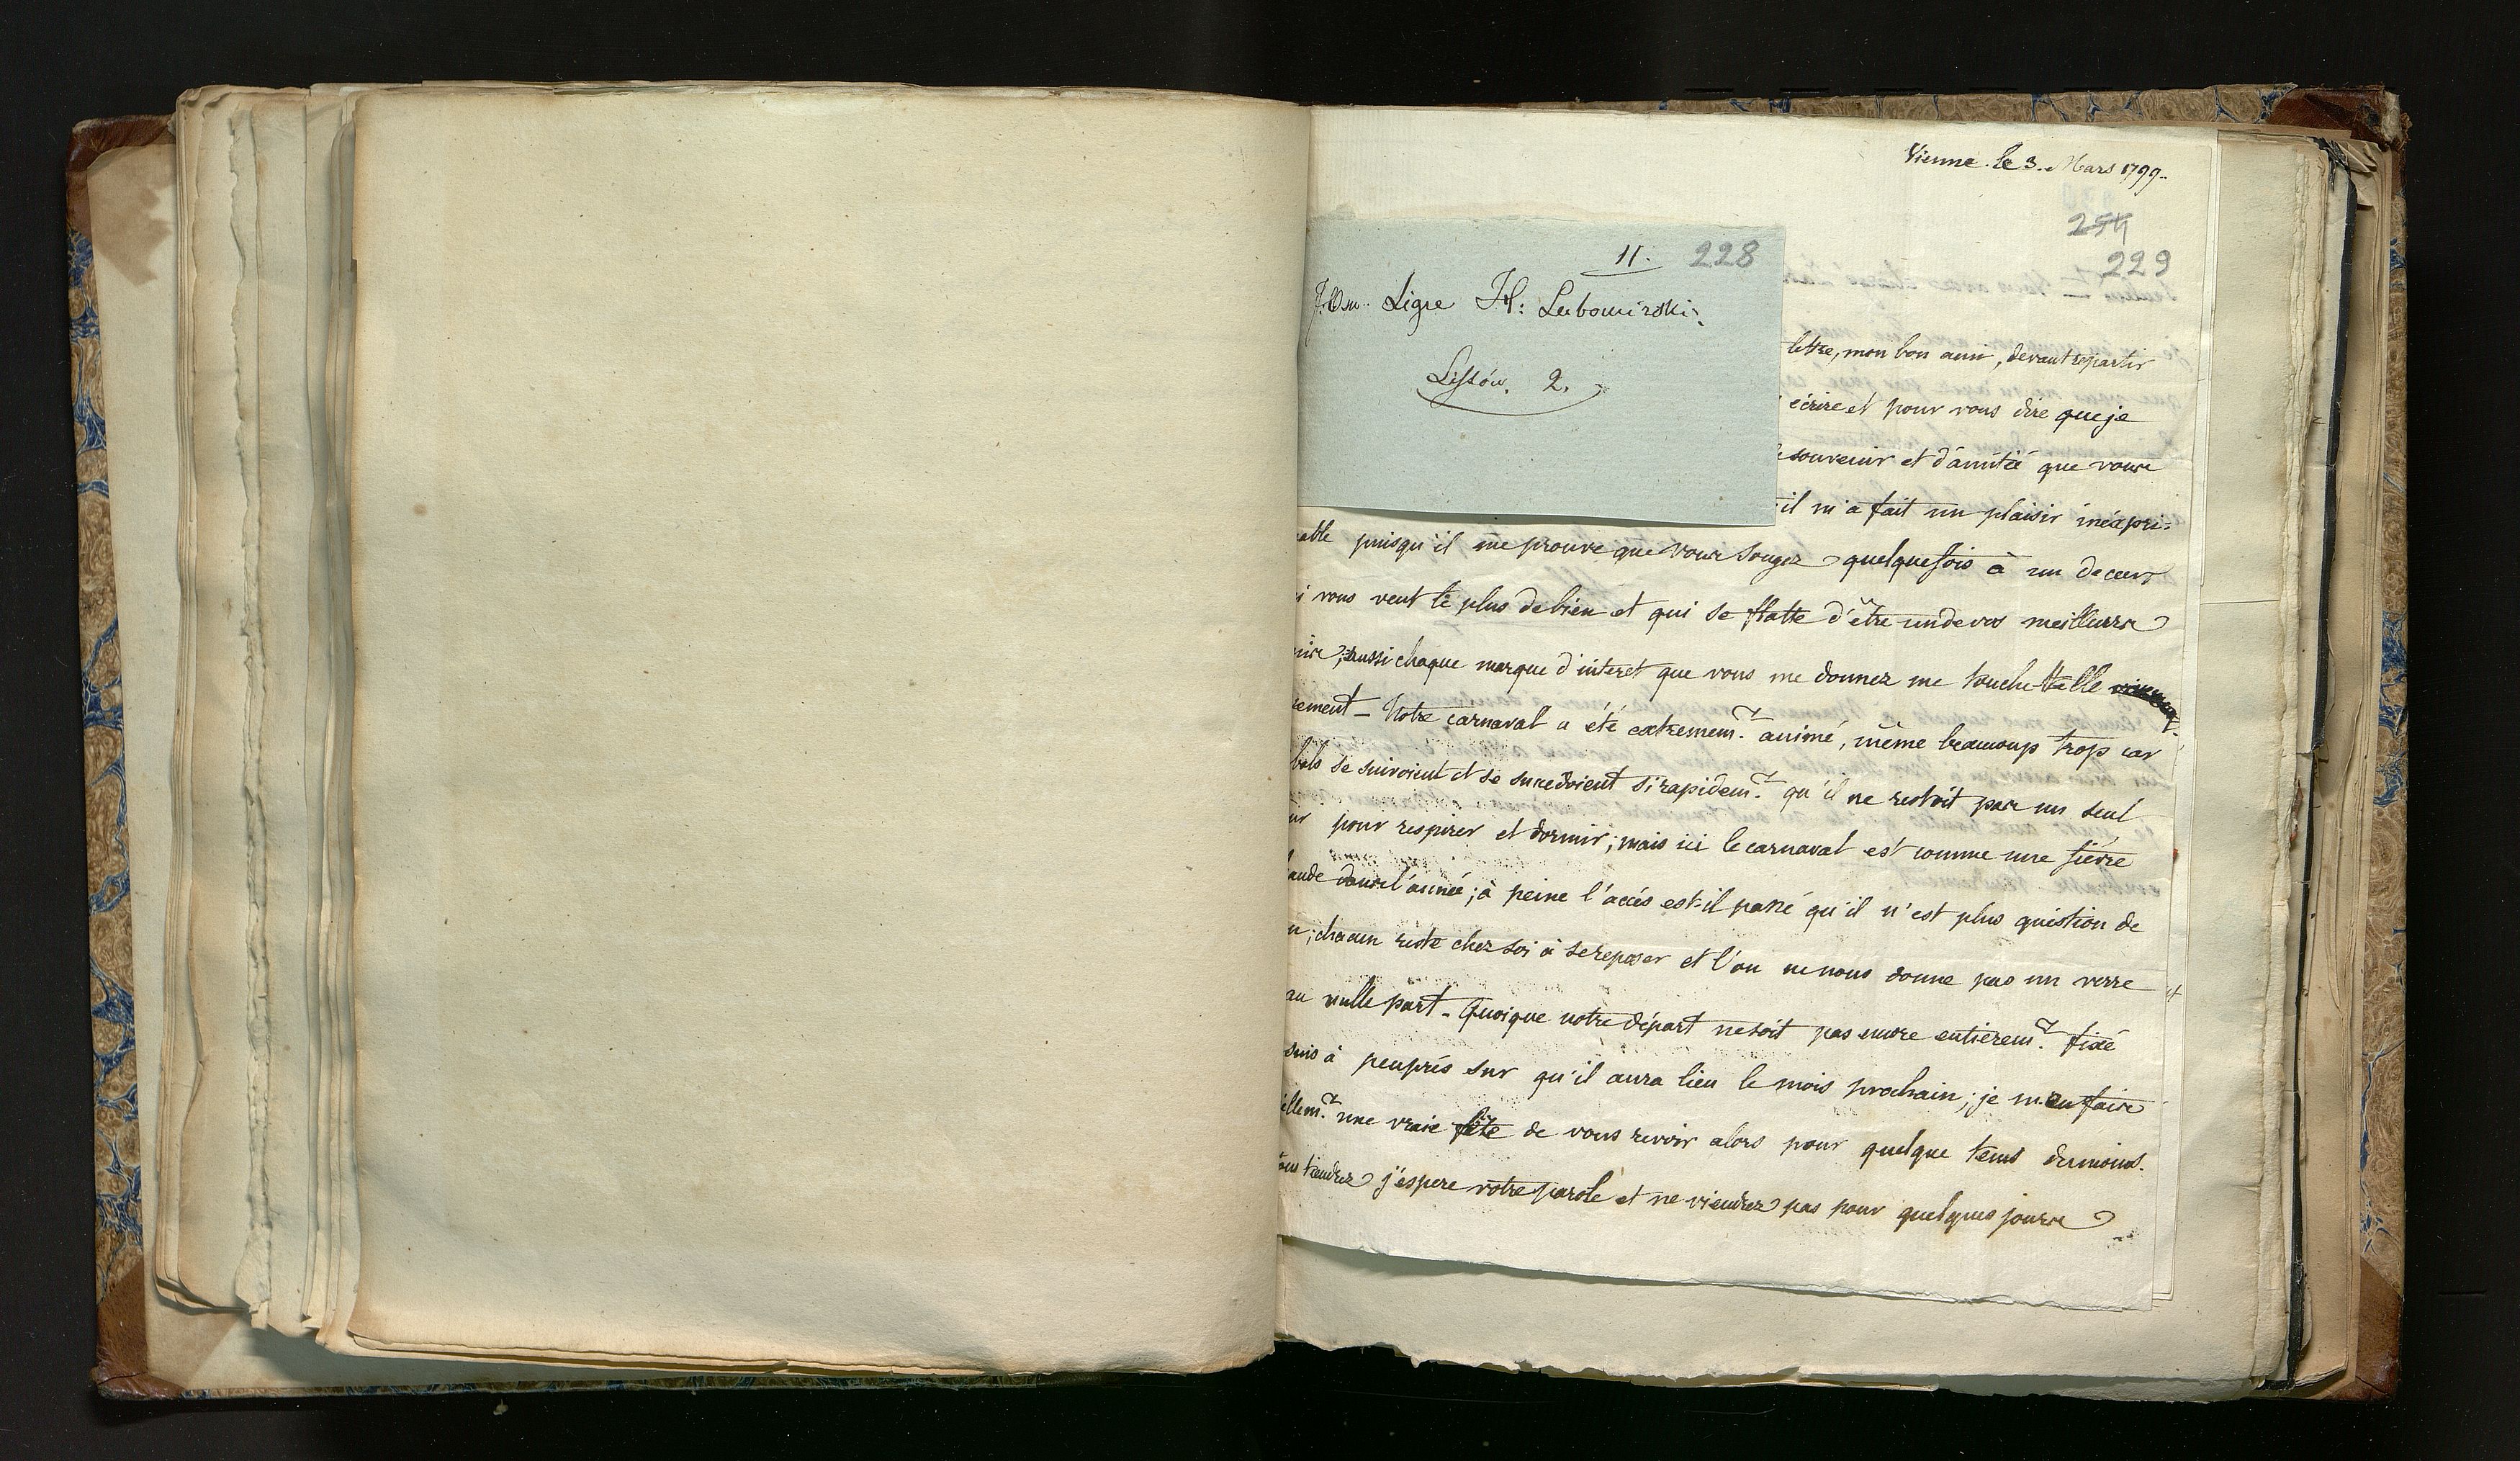 Vienne. le 3. Mars 1799.
254
229
11. 228
Ligne H: Lubomirski.
Listów. 2.
lettre, mon bon ami, devant repartir
écrire et pour vous dire que je
souvenir et d'amitié que vous
il m'a fait un plaisir inéapri=
able puisqu'il me prouve que vous songez quelquefois à un de ceux
i vous veut le plus de bien et qui se flatte d'être un de vos meilleurs
mis, aussi chaque marque d'interet que vous me donnez me touche t'elle
sement - Notre carnaval a été extremem.t animé, même beaucoup trop car
bals se suivoient et se succedoient si rapidem.t qu'il ne restoit pas un seul
ur pour respirer et dormir; mais ici le carnaval est comme une fièvre
aude dans l'année; à peine l'accés est-il passé qu'il n'est plus quéstion de
n; chacun reste chez soi à se reposer et l'on ne nous donne pas un verre
au nulle part - Quoique notre départ ne soit pas encore entierem.t fixé
suis à peuprés sur qu'il aura lieu le mois prochain; je m'en fais
éellem.t une vraie fête de vous revoir alors pour quelque tems dumoins.
ous tiendrez j'espere votre parole et ne viendrez pas pour quelques jours